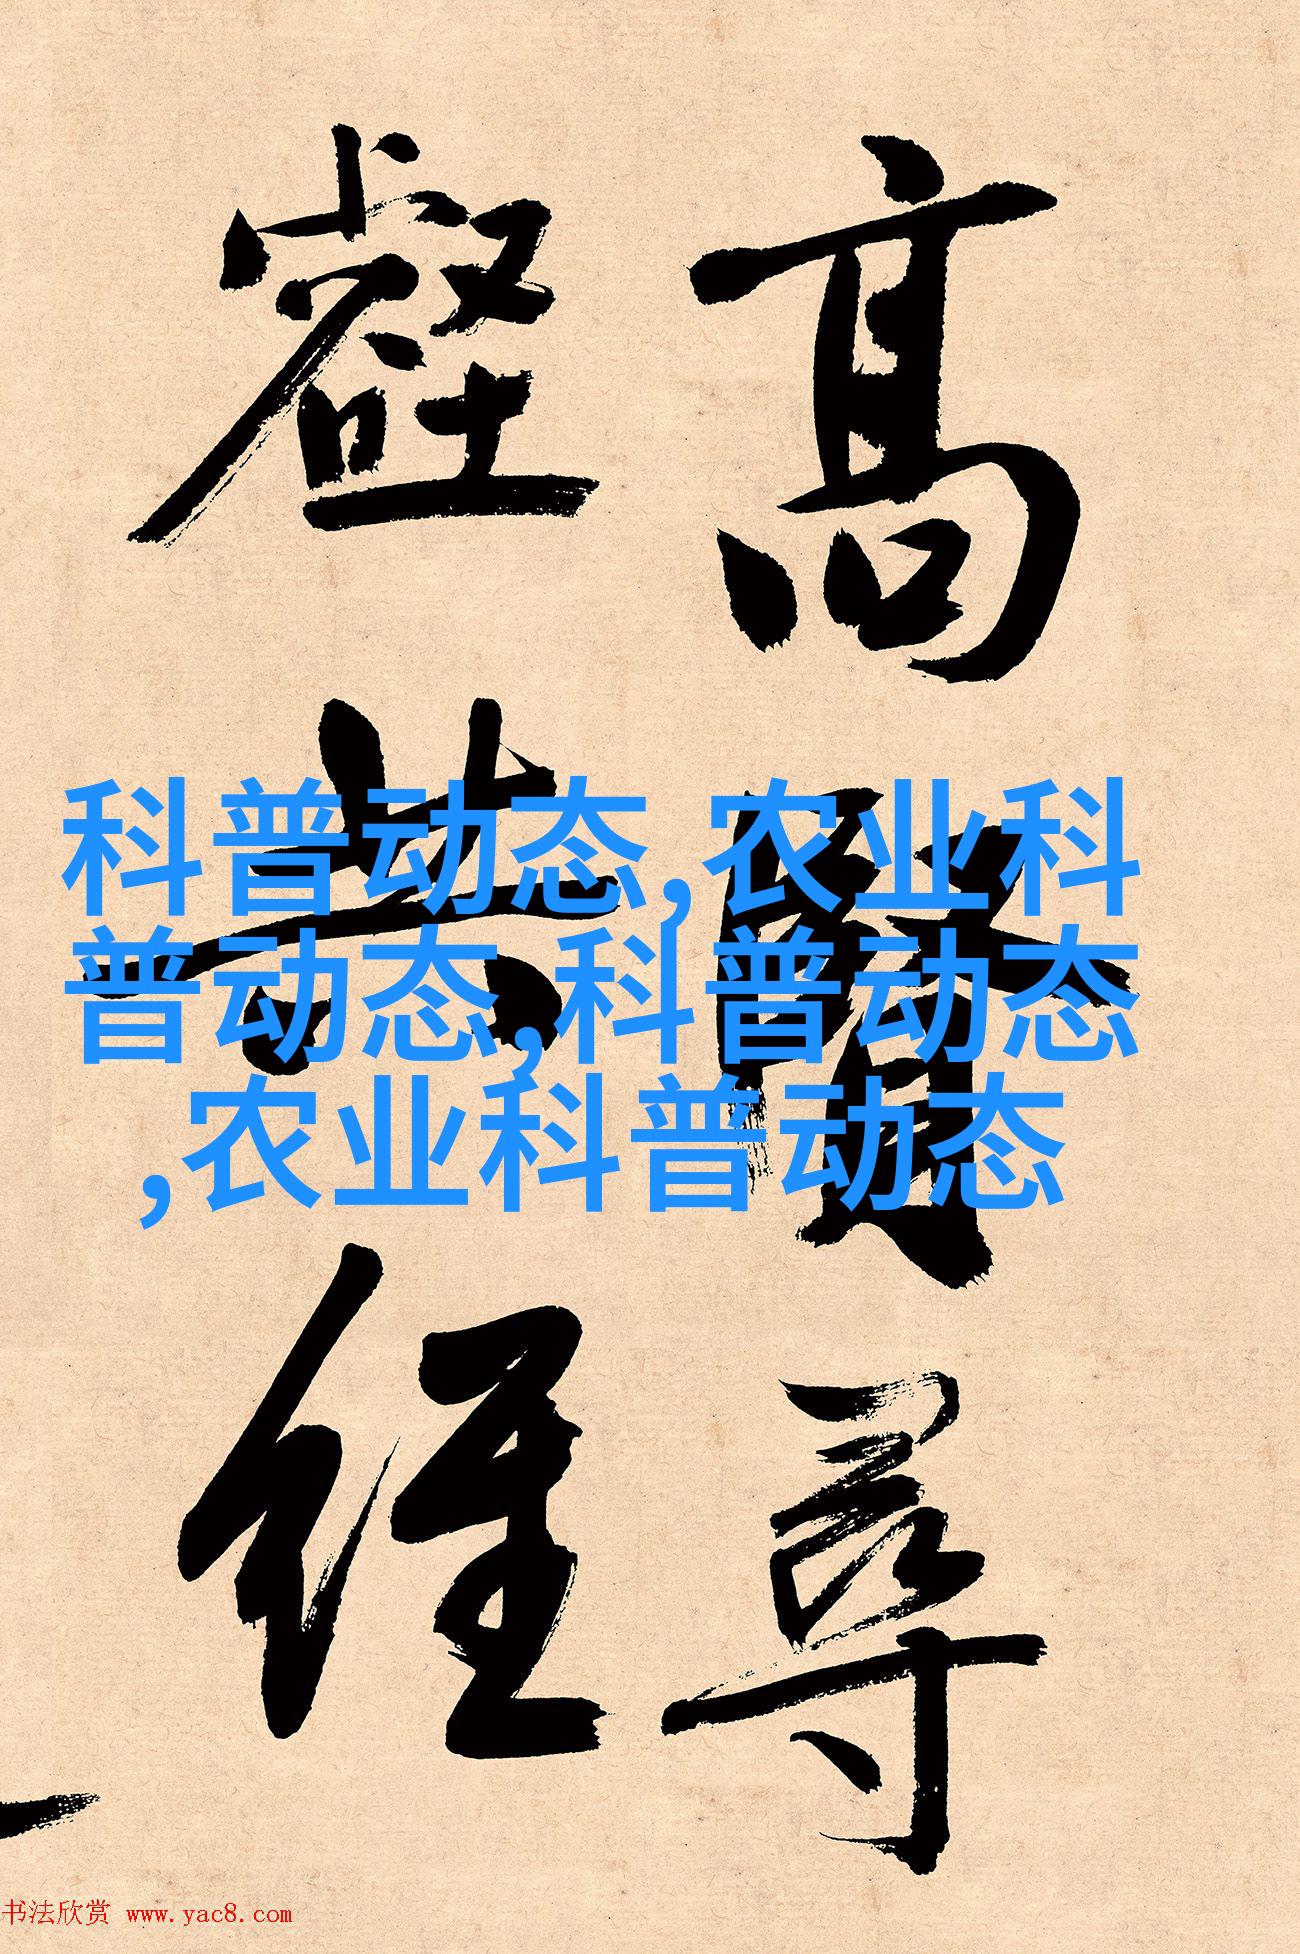 高賢尋
壑共經
科普动态,农业科
普动态,科普动态
,农业科普动态
书法欣赏 www.yac8.com